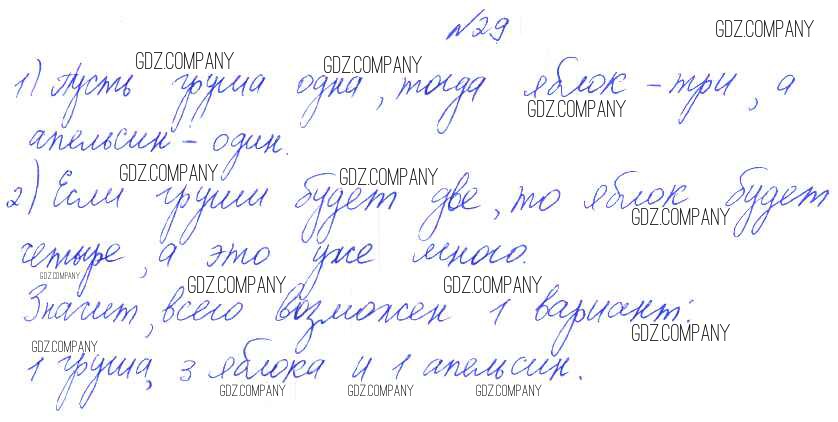 №29
GDZ.COMPANY
GDZ.COMPANY GDZ.COMPANY
1) Пусть груша одна, тогда яблок - три, а
GDZ.COMPANY
апельсин - один.
GDZ.COMPANY GDZ.COMPANY
2) Если груши будет две, то яблок будет
GDZ.COMPANY
четыре, а это уже много.
GDZ.COMPANY GDZ.COMPANY GDZ.COMPANY
Значит, всего возможен 1 вариант:
GDZ.COMPANY GDZ.COMPANY
1 груша, 3 яблока и 1 апельсин.
GDZ.COMPANY GDZ.COMPANY GDZ.COMPANY